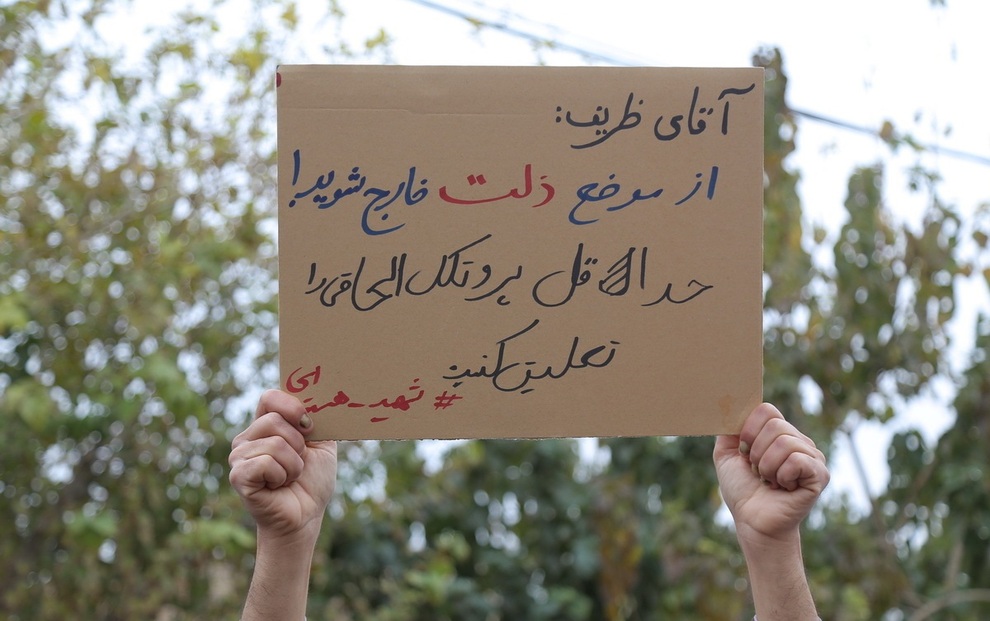 آقای ظریف:
از موضع ذلت خارج شوید!
حداقل پروتکل الحاقی را
تعلیق کنید
#شهید_هسته‌ای